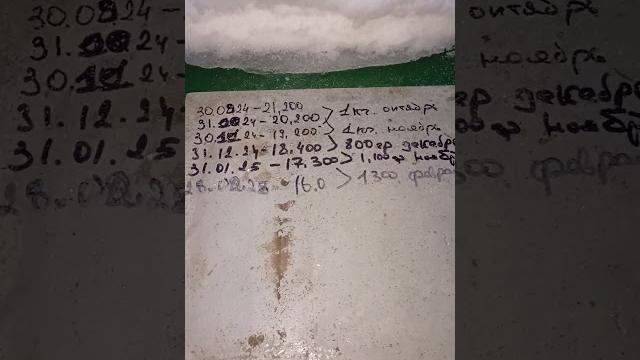 30.09.24 - 21,200
31.10.24 - 20,200 > 1 кг. октябрь
30.11.24 - 19,200 > 1 кг. ноябрь
31.12.24 - 18.400 > 800 гр декабрь
31.01.25 - 17,300 > 1,100 гр
28.02.25 - 16.0 > 1300